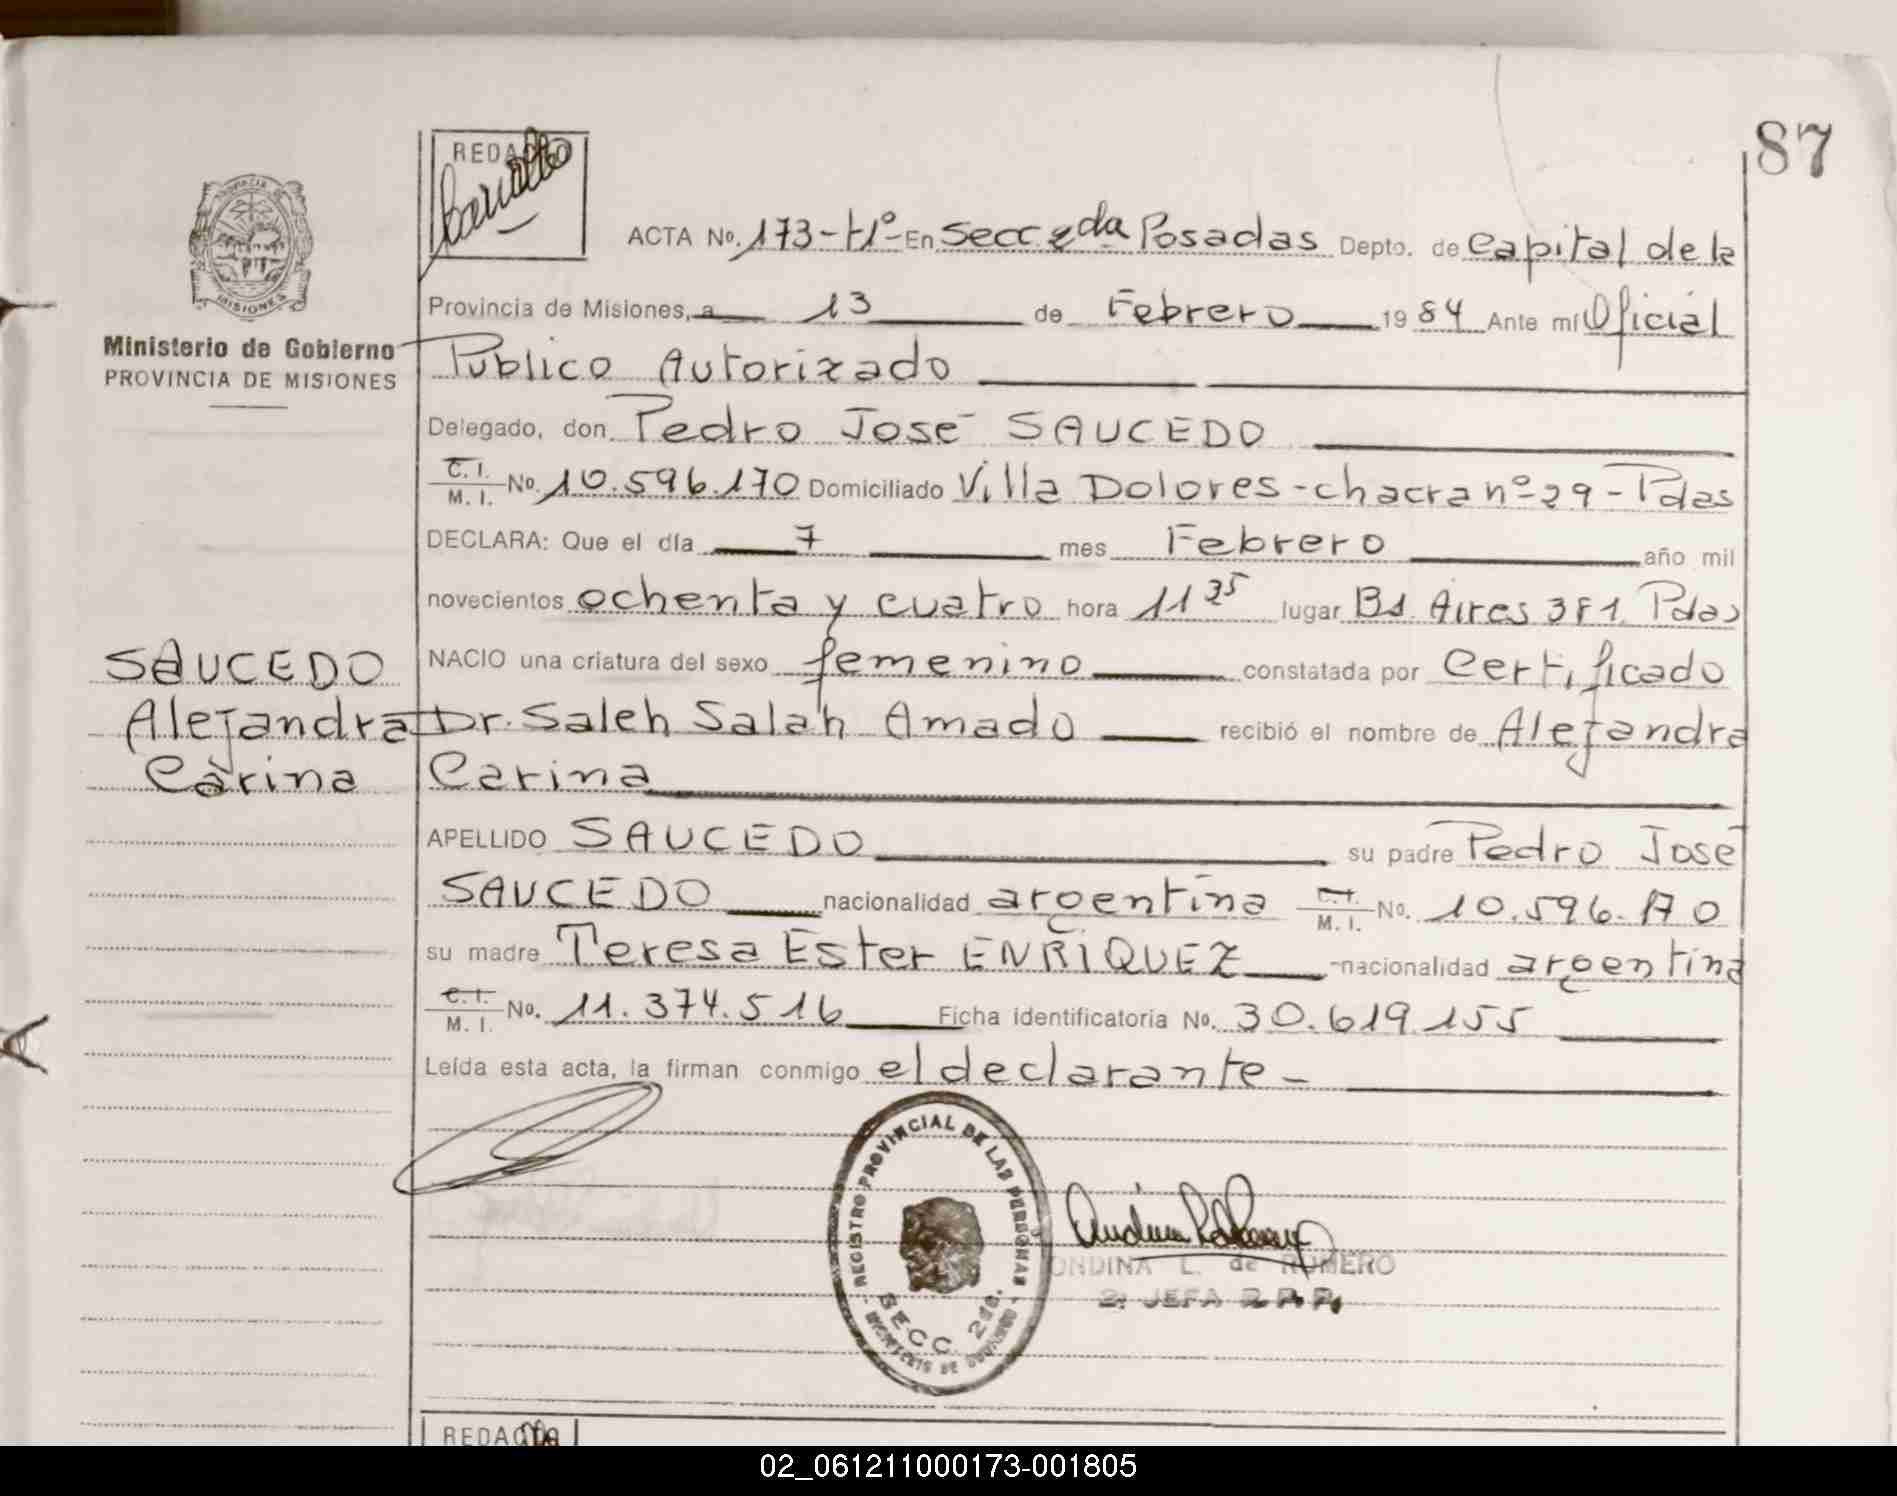 87
REDACTO
ACTA No. 173-H°- En Secc 2da Posadas Depto. de Capital de la
Provincia de Misiones, a 13 de Febrero 1984 Ante mí Oficial
Ministerio de Gobierno
PROVINCIA DE MISIONES
Público Autorizado
Delegado, don Pedro José SAUCEDO
C. I. M. I. No. 10.596.170 Domiciliado Villa Dolores - chacra nº 29 - Pdas
DECLARA: Que el día 7 mes Febrero año mil
novecientos ochenta y cuatro hora 11 35 lugar Bs. Aires 381 Pdas
NACIO una criatura del sexo femenino constatada por Certificado
SAUCEDO
Alejandra
Carina
Dr. Saleh Salah Amado recibió el nombre de Alejandra
Carina
APELLIDO SAUCEDO su padre Pedro José
SAUCEDO nacionalidad argentina C. I. M. I. No. 10.596.170
su madre Teresa Ester ENRIQUEZ nacionalidad argentina
C. I. M. I. No. 11.374.516 Ficha identificatoria No. 30.619.155
Leída esta acta, la firman conmigo el declarante -
REGISTRO PROVINCIAL DE LAS PERSONAS
SECC 2da.
ONDINA L. de ROMERO
2ª JEFA R. P. P.
REDACTO
02_061211000173-001805